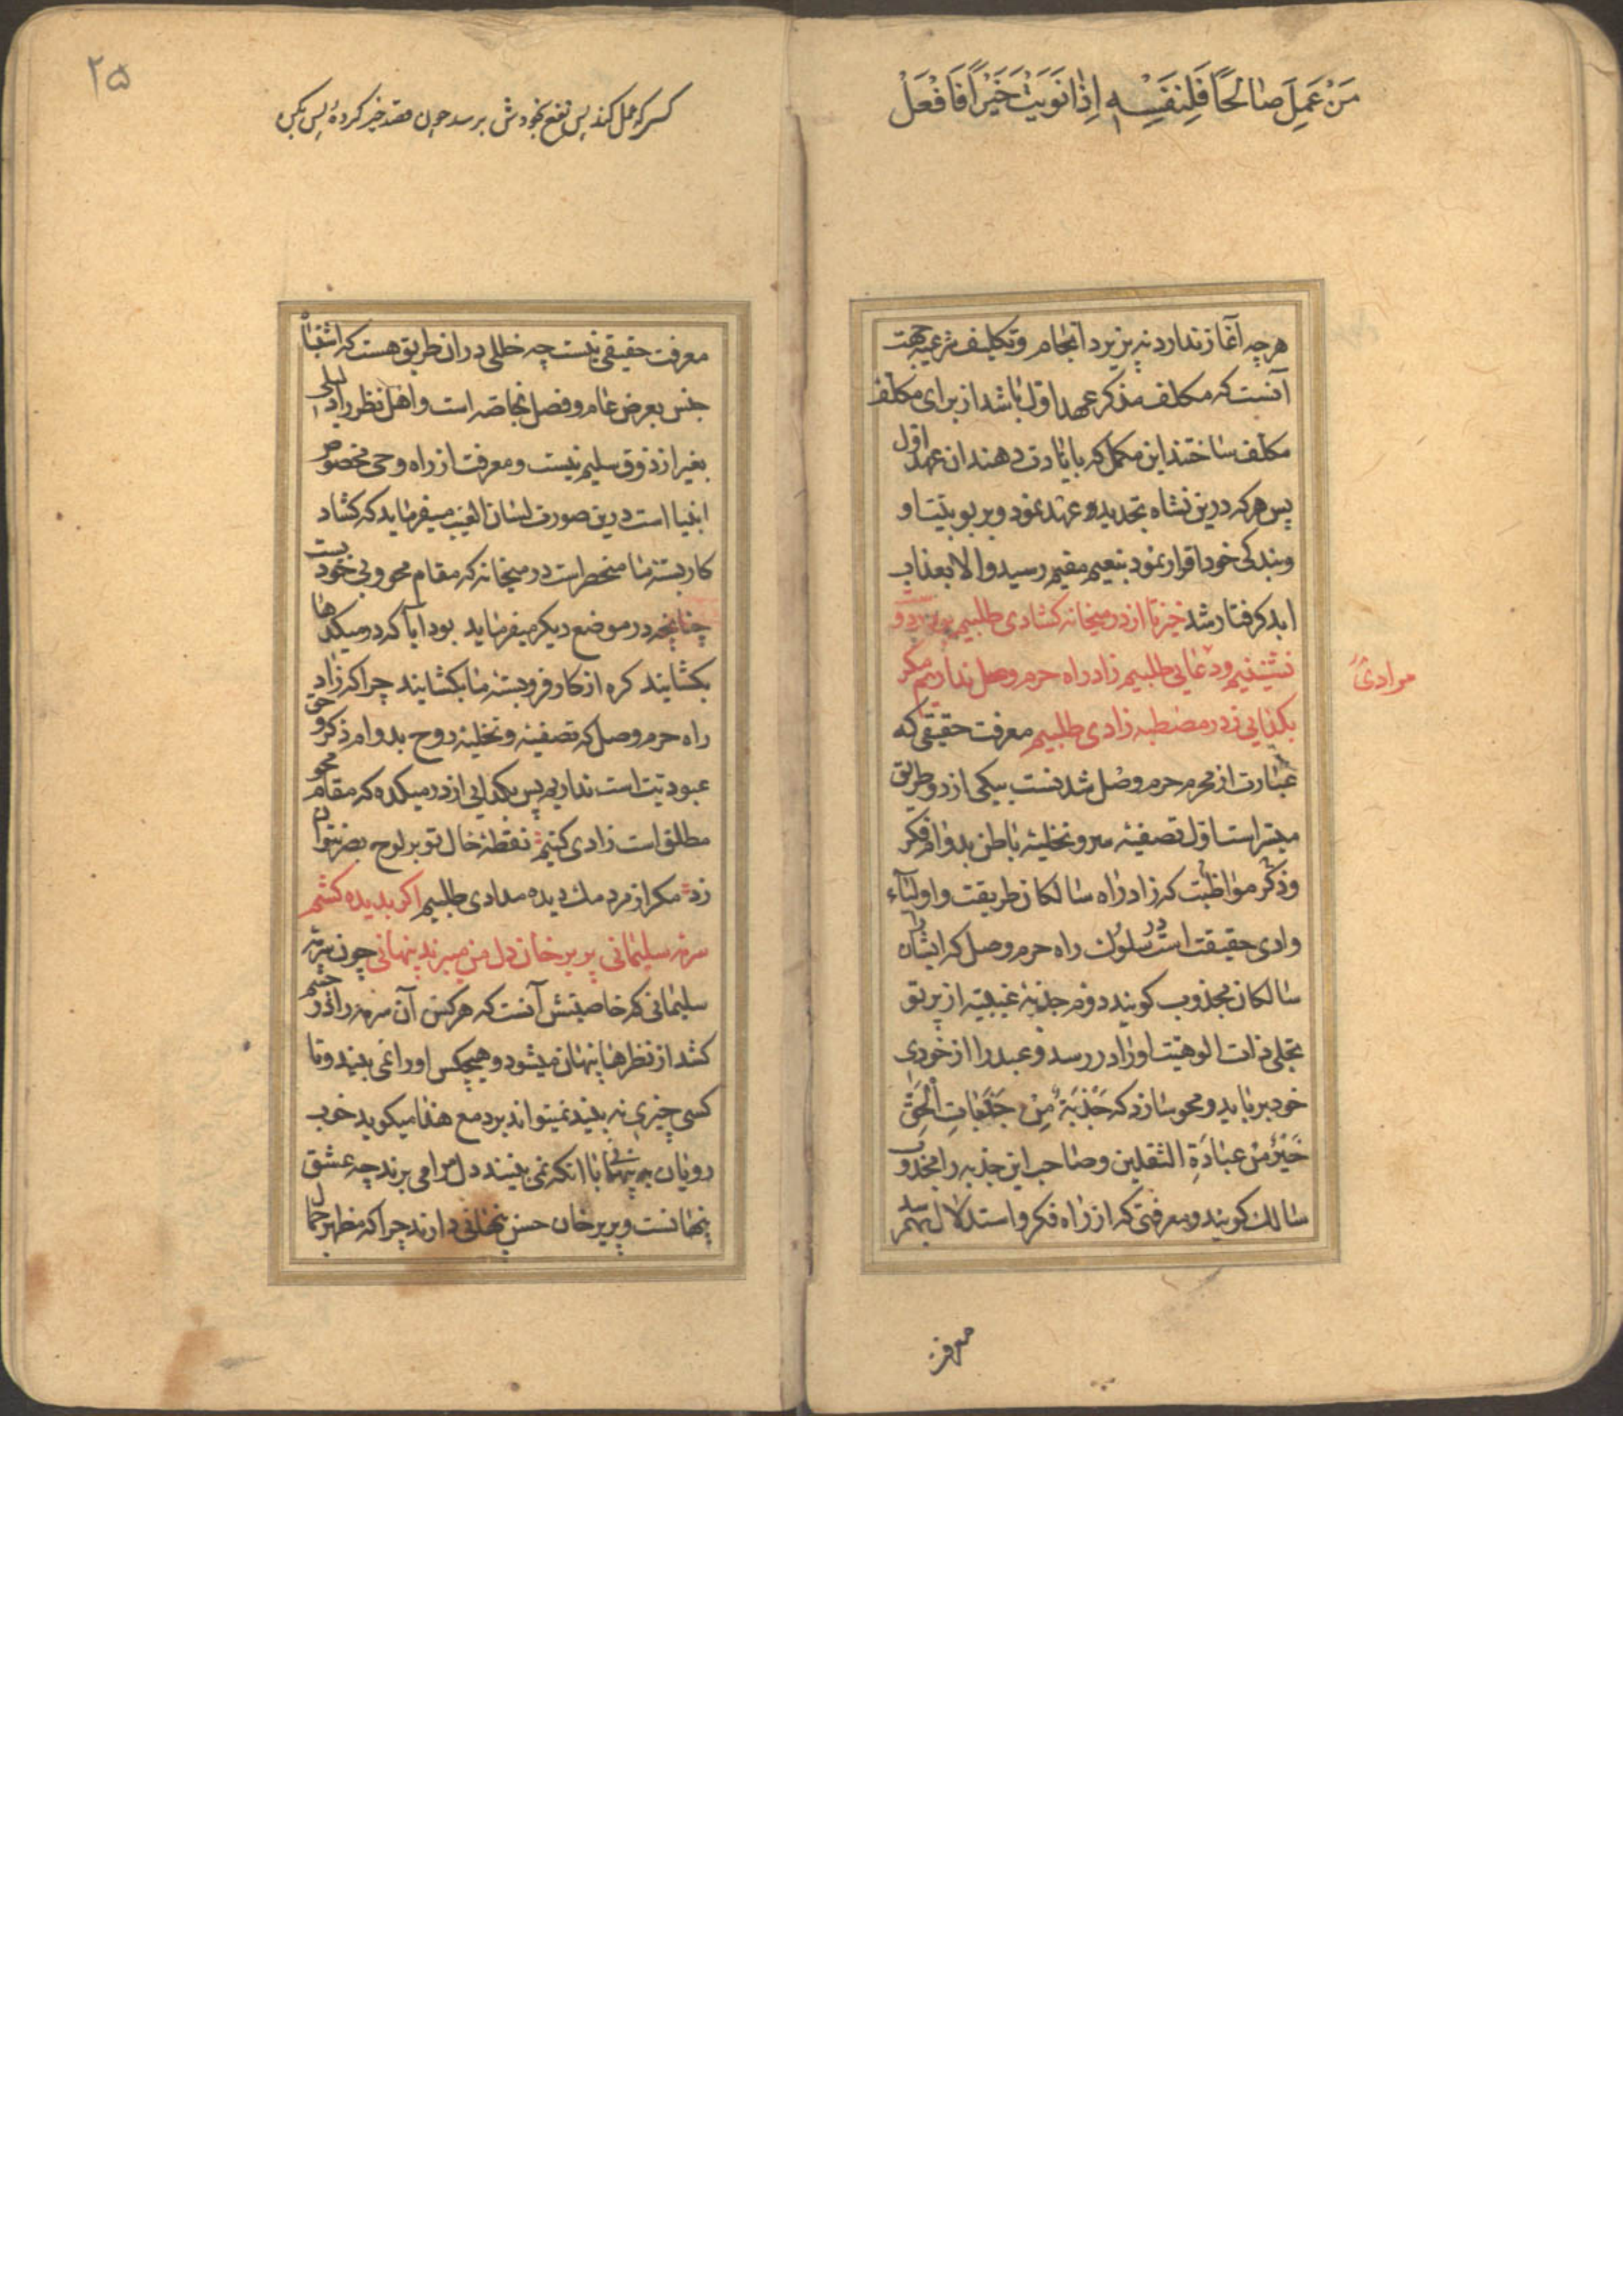 مَنْ عَمِلَ صٰالِحًا فَلِنَفْسِهٖ اِذٰا نَوَيْتَ خَيْرًا فَافْعَلْ
هرچه آغاز ندارد نه پزیرد انجام و تکلیف شرعیه جهت
آنست که مکلف مذکر عهد اول باشد از برای مکلف
مکلف ساختند این مکمل که بایادت دهند ان عهد اول
پس هرکه درین نشاه تجدید و عهد نمود و بربوبیت او
و بندکی خود اقرار نمود بنعیم مقیم رسید و الا بعذاب
ابد کرفتار شد خیز تا از در میخانه کشادی طلبیم بر در دو
نشینیم و دعایی طلبیم زاد راه حرم وصل نداریم مکر
مرادی
بکدایی ز در مصطبه زادی طلبیم معرفت حقیقی که
عبارت از محرم حرم وصل شدنست بیکی از دو طریق
میسر است اول تصفیه سر و تخلیه باطن بدوام فکر
و ذکر مواظبت که زاد راه سالکان طریقت و اولیآء
وادی حقیقت است در سلوک راه حرم وصل که ایشان را
سالکان مجذوب کویند دوم جذبه غیبیه از پرتو
تجلی ذات الوهیت او را در رسد و عبد را از خودی
خود برباید و محو سازد که جَذْبَةٌ مِنْ جَذَبٰاتِ الْحَقِّ
خَیْرٌ مِنْ عبٰادَةِ الثقلین و صاحب این جذبه را مجذوب
سالک کویند و معرفتی که از راه فکر و استدلال بهم رسد
معرفت
۲۵
کسی که عمل کند پس نفع بخودش برسد چون قصد خیر کردهٔ پس بکن
معرفت حقیقی نیست چه خللی دران طریق هست که اشتباه
جنس بعرض عام و فصل بخاصه است و اهل نظر را دلیلی
بغیر از ذوق سلیم نیست و معرفت از راه وحی مخصوص
انبیا است درین صورت لسان الغیب میفرماید که کشاد
کار بسته ما منحصر است در میخانه که مقام محو و بی خودیست
چنانچه در موضع دیکر میفرماید بود ایا که در میکدها
بکشایند کره از کار فروبسته ما بکشایند چرا که زاد
راه حرم وصل که تصفیه و تخلیه روح بدوام ذکر و حق
عبودیت است نداریم پس بکدایی از در میکده که مقام محو
مطلق است زادی کنیم نقطه خال تو بر لوح بصر نتوان
زد مکر از مردمک دیده مدادی طلبیم اکر بدیده کشم
سرمه سلیمانی پریرخان دل من میبرند پنهانی چون سرمه
سلیمانی که خاصیتش آنست که هرکس آن سرمه را در چشم
کشد از نظرها پنهان میشود و هیچکس او را نمی بیند و تا
کسی چیزی نه بیند نمیتواند برد مع هذا میکوید خوب
رویان به پنهانی با انکه نمی بینند دل مرا می برند چه عشق
پنهانست و پریرخان حسن پنهانی دارند چرا که مظهر جمال